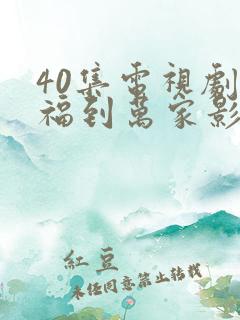 40集電視劇
福到萬家影
紅豆
未經同意禁止轉載